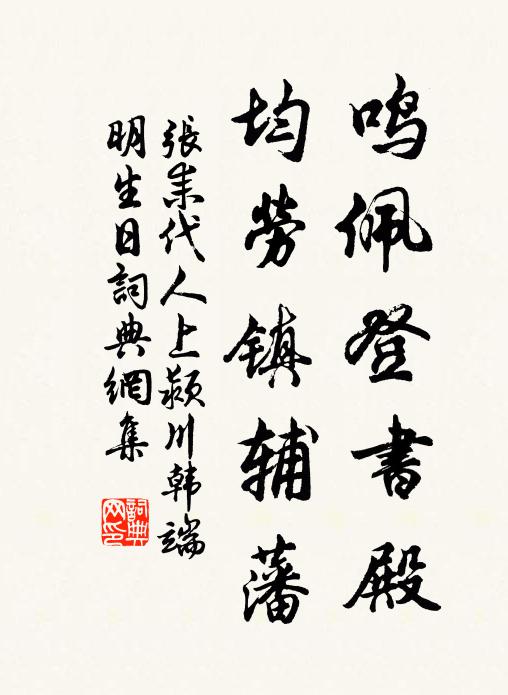 鸣佩登書殿
均勞镇辅藩
張耒代人上颍川韩端
明生日詞典網集
詞典网印